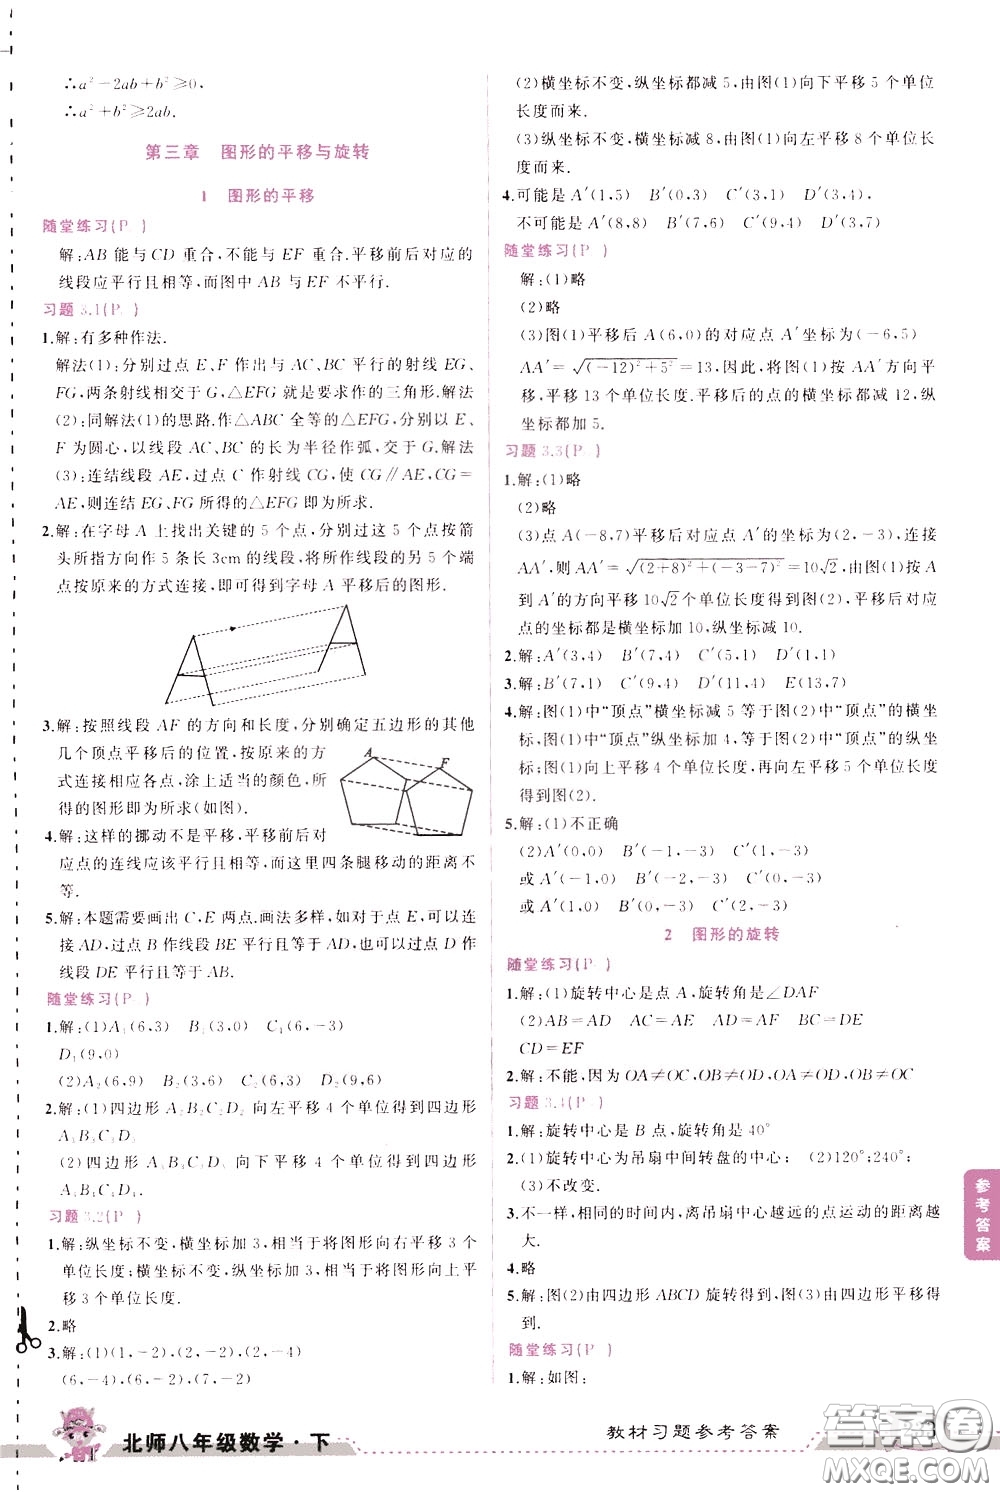 ∴a²－2ab＋b²≥0,
∴a²＋b²≥2ab.
第三章 图形的平移与旋转
1 图形的平移
随堂练习(P )
解:AB 能与 CD 重合,不能与 EF 重合.平移前后对应的
线段应平行且相等,而图中 AB 与 EF 不平行.
习题 3.1(P )
1.解:有多种作法.
解法(1):分别过点 E、F 作出与 AC、BC 平行的射线 EG、
FG,两条射线相交于 G,△EFG 就是要求作的三角形.解法
(2):同解法(1)的思路.作△ABC 全等的△EFG,分别以 E、
F 为圆心,以线段 AC、BC 的长为半径作弧,交于 G,解法
(3):连结线段 AE,过点 C 作射线 CG,使 CG∥AE,CG＝
AE,则连结 EG、FG 所得的△EFG 即为所求.
2.解:在字母 A 上找出关键的 5 个点,分别过这 5 个点按箭
头所指方向作 5 条长 3cm 的线段,将所作线段的另 5 个端
点按原来的方式连接,即可得到字母 A 平移后的图形.
3.解:按照线段 AF 的方向和长度,分别确定五边形的其他
几个顶点平移后的位置,按原来的方
式连接相应各点,涂上适当的颜色,所
得的图形即为所求(如图).
A
F
4.解:这样的挪动不是平移,平移前后对
应点的连线应该平行且相等,而这里四条腿移动的距离不
等.
5.解:本题需要画出 C、E 两点.画法多样,如对于点 E,可以连
接 AD,过点 B 作线段 BE 平行且等于 AD,也可以过点 D 作
线段 DE 平行且等于 AB.
随堂练习(P )
1.解:(1)A₁(6,3) B₁(3,0) C₁(6,－3)
D₁(9,0)
(2)A₂(6,9) B₂(3,6) C₂(6,3) D₂(9,6)
2.解:(1)四边形 A₂B₂C₂D₂ 向左平移 4 个单位得到四边形
A₃B₃C₃D₃
(2)四边形 A₁B₁C₁D₁ 向下平移 4 个单位得到四边形
A₄B₄C₄D₄
习题 3.2(P )
1.解:纵坐标不变,横坐标加 3,相当于将图形向右平移 3 个
单位长度;横坐标不变,纵坐标加 3,相当于将图形向上平
移 3 个单位长度.
2.略
3.解:(1)(1,－2),(2,－2),(2,－4)
(6,－4),(6,－2),(7,－2)
(2)横坐标不变,纵坐标都减 5,由图(1)向下平移 5 个单位
长度而来.
(3)纵坐标不变,横坐标减 8,由图(1)向左平移 8 个单位长
度而来.
4.可能是 A′(1,5) B′(0,3) C′(3,1) D′(3,4),
不可能是 A′(8,8) B′(7,6) C′(9,4) D′(3,7)
随堂练习(P )
解:(1)略
(2)略
(3)图(1)平移后 A(6,0)的对应点 A′坐标为(－6,5)
AA′＝√((－12)²＋5²)＝13,因此,将图(1)按 AA′方向平
移,平移 13 个单位长度.平移后的点的横坐标都减 12,纵
坐标都加 5.
习题 3.3(P )
1.解:(1)略
(2)略
(3)点 A(－8,7)平移后对应点 A′的坐标为(2,－3),连接
AA′,则 AA′＝√((2＋8)²＋(－3－7)²)＝10√2,由图(1)按 A
到 A′的方向平移 10√2 个单位长度得到图(2),平移后对应
点的坐标都是横坐标加 10,纵坐标减 10.
2.解:A′(3,4) B′(7,4) C′(5,1) D′(1,1)
3.解:B′(7,1) C′(6,4) D′(1,1) E(13,7)
4.解:图(1)中“顶点”横坐标减 5 等于图(2)中“顶点”的横坐
标,图(1)中“顶点”纵坐标加 4,等于图(2)中“顶点”的纵坐
标;图(1)向上平移 4 个单位长度,再向左平移 5 个单位长度
得到图(2).
5.解:(1)不正确
(2)A′(0,0) B′(－1,－3) C′(1,－3)
或 A′(－1,0) B′(－2,－3) C′(0,－3)
或 A′(1,0) B′(0,－3) C′(2,－3)
2 图形的旋转
随堂练习(P )
1.解:(1)旋转中心是点 A,旋转角是∠DAF
(2)AB＝AD AC＝AE AF＝AD BC＝DE
CD＝EF
2.解:不能,因为 OA≠OC,OB≠OD,OA≠OD,OB≠OC
习题 3.4(P )
1.解:旋转中心是 B 点,旋转角是 40°
2.(1)旋转中心为吊扇中间转盘的中心; (2)120°;240°;
(3)不改变.
3.不一样,相同的时间内,离吊扇中心越远的点运动的距离越
大.
4.略
5.解:图(2)由四边形 ABCD 旋转得到,图(3)由四边形平移得
到.
随堂练习(P )
1.解:如图:
参考答案
北师八年级数学·下
教材习题参考答案
3
答案卷
MXQE.COM